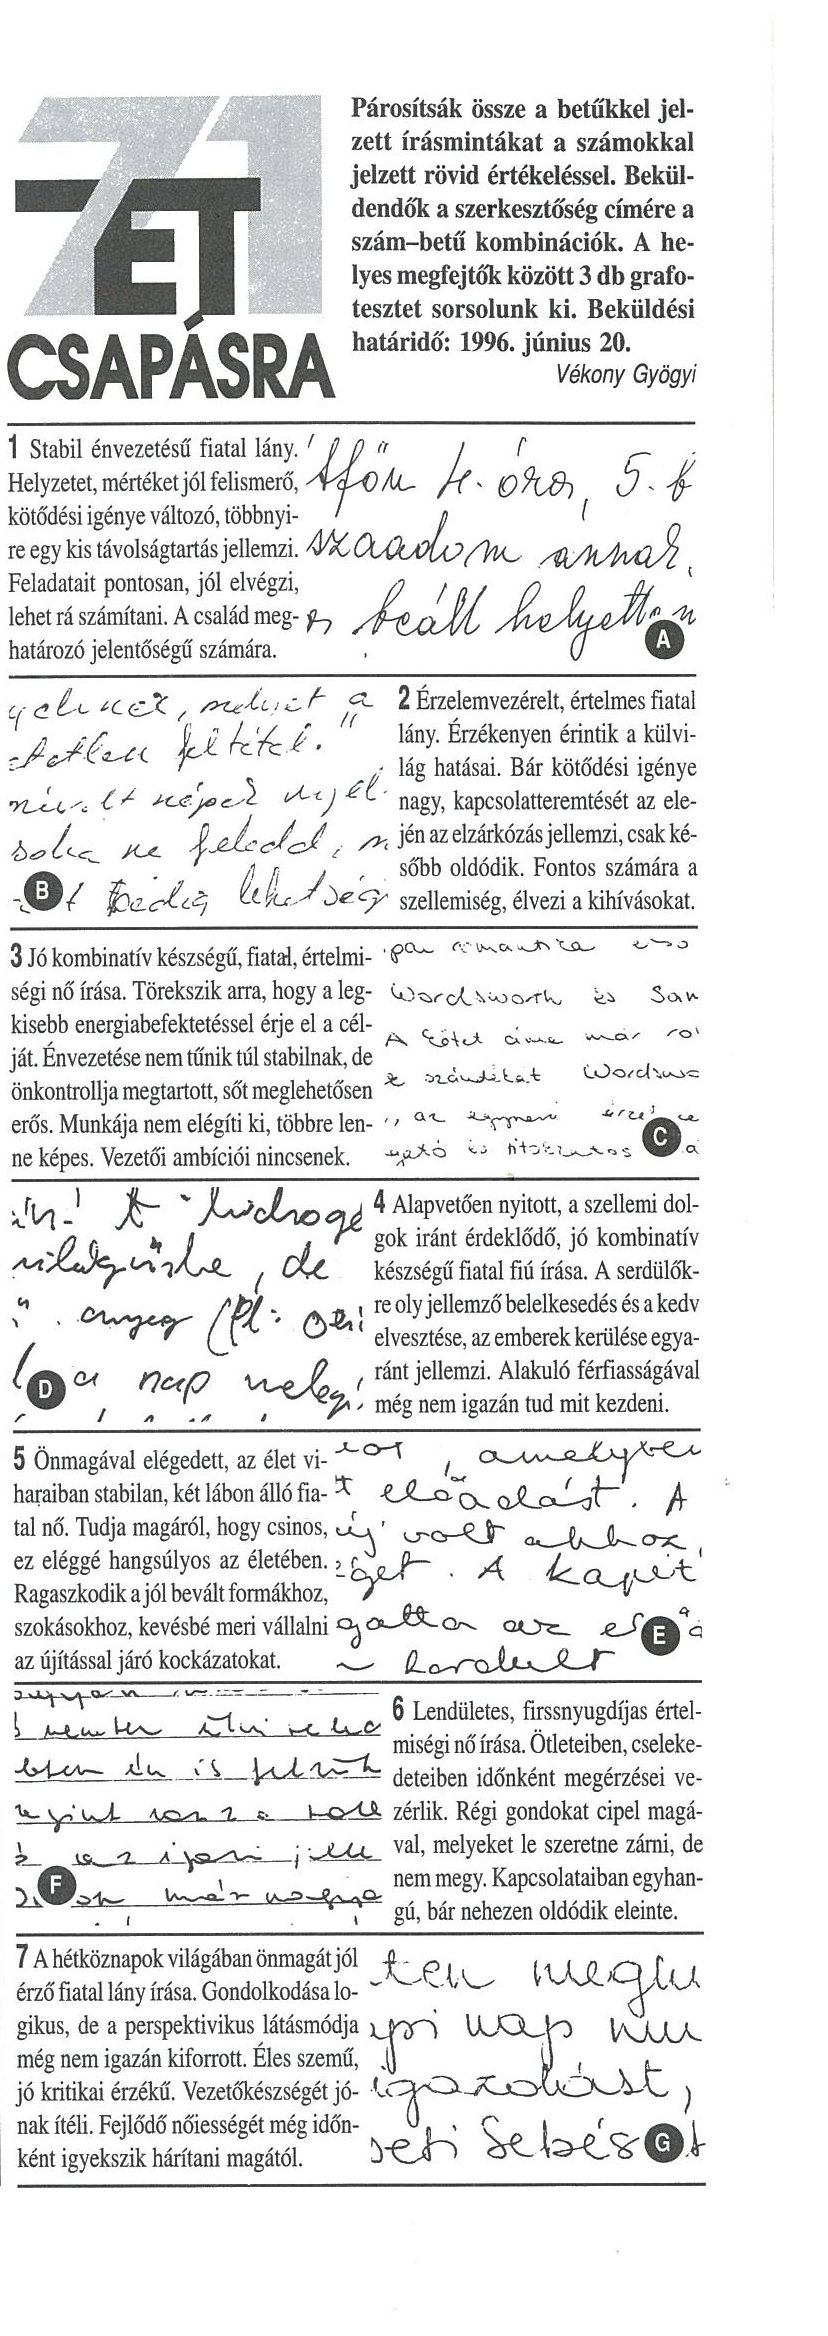 7ET 1
CSAPÁSRA
Párosítsák össze a betűkkel jel-
zett írásmintákat a számokkal
jelzett rövid értékeléssel. Bekül-
dendők a szerkesztőség címére a
szám–betű kombinációk. A he-
lyes megfejtők között 3 db grafo-
tesztet sorsolunk ki. Beküldési
határidő: 1996. június 20.
Vékony Gyögyi
1 Stabil énvezetésű fiatal lány.
Helyzetet, mértéket jól felismerő,
kötődési igénye változó, többnyi-
re egy kis távolságtartás jellemzi.
Feladatait pontosan, jól elvégzi,
lehet rá számítani. A család meg-
határozó jelentőségű számára.
4. óra, 5. b
annak,
beáll helyettem
A
a
feltétel."
népek nyel
soha ne feledd,
pedig lehetség
B
2 Érzelemvezérelt, értelmes fiatal
lány. Érzékenyen érintik a külvi-
lág hatásai. Bár kötődési igénye
nagy, kapcsolatteremtését az ele-
jén az elzárkózás jellemzi, csak ké-
sőbb oldódik. Fontos számára a
szellemiség, élvezi a kihívásokat.
3 Jó kombinatív készségű, fiatal, értelmi-
ségi nő írása. Törekszik arra, hogy a leg-
kisebb energiabefektetéssel érje el a cél-
ját. Énvezetése nem tűnik túl stabilnak, de
önkontrollja megtartott, sőt meglehetősen
erős. Munkája nem elégíti ki, többre len-
ne képes. Vezetői ambíciói nincsenek.
romantika első
Wordsworth és Sam
A kötet címe már ro
szándékát Wordswo
az egyszeri érzé
és titokzatos a
C
A hidrogé
világűrbe, de
anyag (Pl: óri
a nap meleg
D
4 Alapvetően nyitott, a szellemi dol-
gok iránt érdeklődő, jó kombinatív
készségű fiatal fiú írása. A serdülők-
re oly jellemző belelkesedés és a kedv
elvesztése, az emberek kerülése egya-
ránt jellemzi. Alakuló férfiasságával
még nem igazán tud mit kezdeni.
5 Önmagával elégedett, az élet vi-
haraiban stabilan, két lábon álló fia-
tal nő. Tudja magáról, hogy csinos,
ez eléggé hangsúlyos az életében.
Ragaszkodik a jól bevált formákhoz,
szokásokhoz, kevésbé meri vállalni
az újítással járó kockázatokat.
, amelyben
t előadást. A
volt ahhoz,
get. A kapit
gatta az elő
fordult
E
én is
az ipari
már
F
6 Lendületes, firssnyugdíjas értel-
miségi nő írása. Ötleteiben, cseleke-
deteiben időnként megérzései ve-
zérlik. Régi gondokat cipel magá-
val, melyeket le szeretne zárni, de
nem megy. Kapcsolataiban egyhan-
gú, bár nehezen oldódik eleinte.
7 A hétköznapok világában önmagát jól
érző fiatal lány írása. Gondolkodása lo-
gikus, de a perspektivikus látásmódja
még nem igazán kiforrott. Éles szemű,
jó kritikai érzékű. Vezetőkészségét jó-
nak ítéli. Fejlődő nőiességét még időn-
ként igyekszik hárítani magától.
ten meghí
pi nap mu
igazolást,
seti Sebés
G